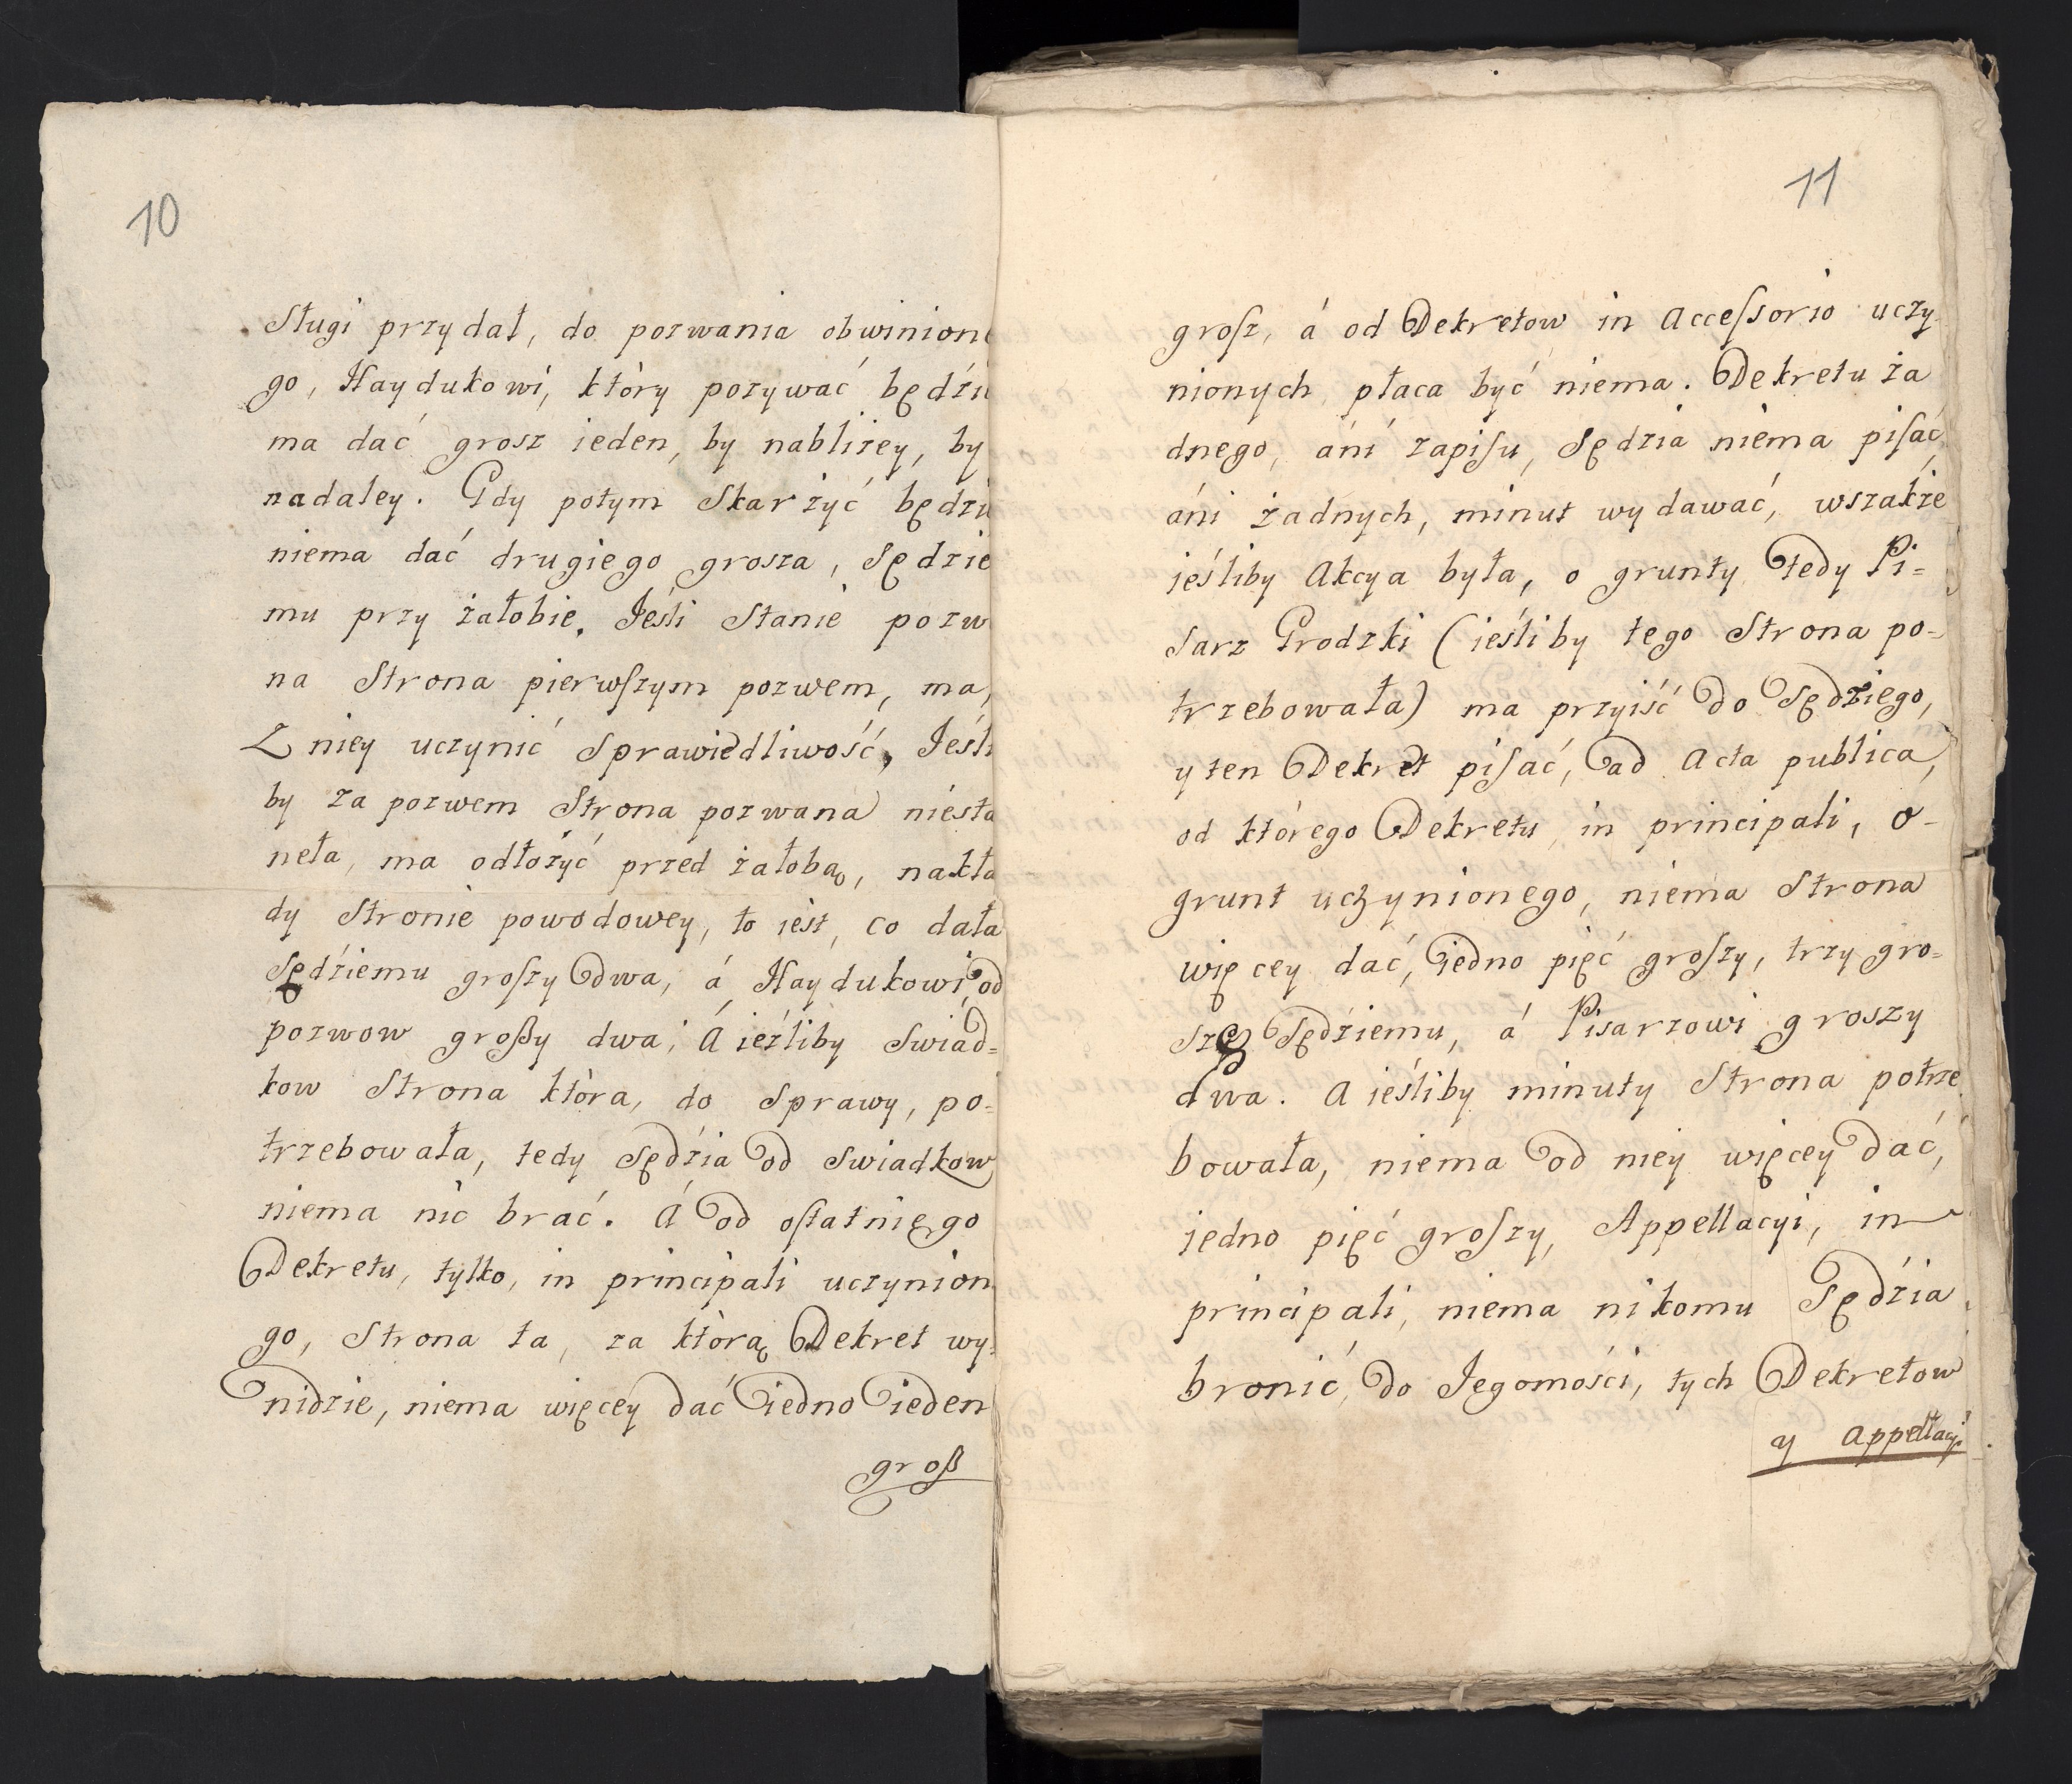 10
Sługi przydał, do pozwania obwinione
go, Haydukowi, ktòry pozywać będzie
ma dać grosz ieden, by nabliżey, by
nadaley. Gdy potym Skarżyć będzie
niema dać drugiego grosza, Sędzie
mu przy żałobie. Jeśli Stanie pozw
na Strona pierwſzym pozwem, ma,
Z niey uczynić Sprawiedliwość, Jeśli
by za pozwem Strona pozwana niesta
neła, ma odłożyć przed żałobą, nakła
dy Stronie powodowey, to iest, co dała
Sędziemu groſzy Dwa, á Haydukowi od
pozwow groſzy dwa; A ieżliby Swiad=
kow Strona ktòra, do Sprawy, po=
trzebowała, tedy Sędzia od Swiadkow
niema nic brać. A od oſtatniego
Dekretu, tylko, in principali uczynion
go, Strona ta, za ktòrą Dekret wy=
nidzie, niema więcey dać iedno ieden
groſz
11
groſz, á od Dekretow in Acceſsorio uczy
nionych płaca być niema. Dekretu ża
dnego, áni zapiſu, Sędzia niema piſać,
áni żadnych, minut wydawać, wszakże
ieśliby Akcya była, o grunty tedy Pi=
sarz Grodzki (ieśliby tego Strona po=
trzebowała) ma przyiść do Sędziego,
y ten Dekret piſać, ad Acta publica,
od ktòrego Dekretu in principali, o=
grunt uczynionego, niema Strona
więcey dać, iedno pięć groſzy, trzy gro=
sze Sędziemu, á Pisarzowi groszy
dwa. A ieśliby minuty Strona potrze
bowała, niema od niey więcey dać,
jedno pięć groſzy, Appellacyi, in
principali, niema nikomu Sędzia
bronić, do Jegomości, tych Dekretow
y Appellacyi